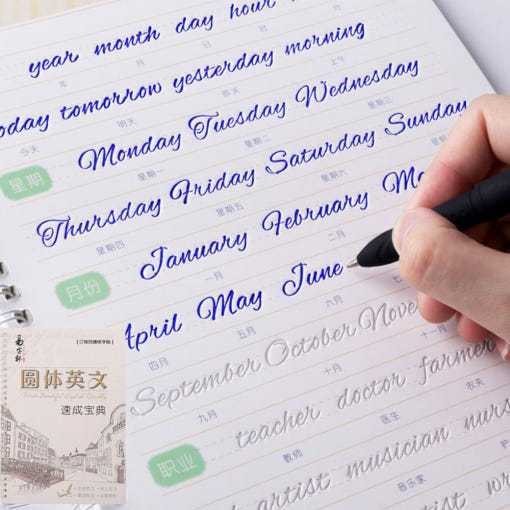 year month day hour
年 月 日 时
today tomorrow yesterday morning
今天 明天 昨天 上午
Monday Tuesday Wednesday
星期 星期一 星期二 星期三
Thursday Friday Saturday Sunday
星期四 星期五 星期六 星期日
January February Ma
月份 一月 二月
April May June
四月 五月 六月 七月
September October Nove
九月 十月 十一月
teacher doctor farmer
职业 教师 医生 农夫
artist musician nurs
音乐家 护
artist wr
易字轩
圆体英文
速成宝典